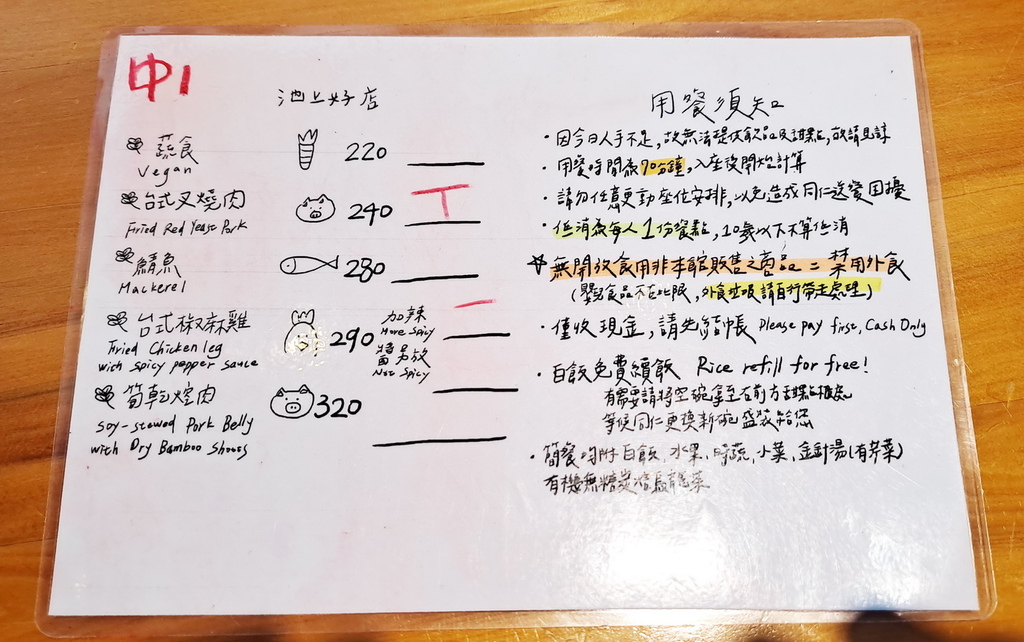 中1
池上好店
蔬食 220
Vegan
台式叉燒肉 240 T
Fried Red Yeast Pork
鯖魚 280
Mackerel
台式椒麻雞 290 加辣 一
Fried Chicken leg More Spicy
with spicy pepper sauce 醬另放
Not Spicy
筍乾焢肉 320
Soy-stewed Pork Belly
with Dry Bamboo Shoots
用餐須知
・因今日人手不足,故無法提供飲品及甜點,敬請見諒
・用餐時間為90分鐘,入座後開始計算
・請勿任意更動座位安排,以免造成同仁送餐困擾
・低消為每人1份餐點,10歲以下不算低消
☆無開放食用非本館販售之商品 = 禁用外食
(嬰兒食品不在此限,外食垃圾請自行帶走處理)
・僅收現金,請先結帳 Please pay first, Cash Only
・白飯免費續飯 Rice refill for free!
有需要請將空碗拿至右前方甜點櫃
等候同仁更換新碗盛裝給您
・簡餐均附白飯、水果、時蔬、小菜、金針湯(有芹菜)
有機無糖